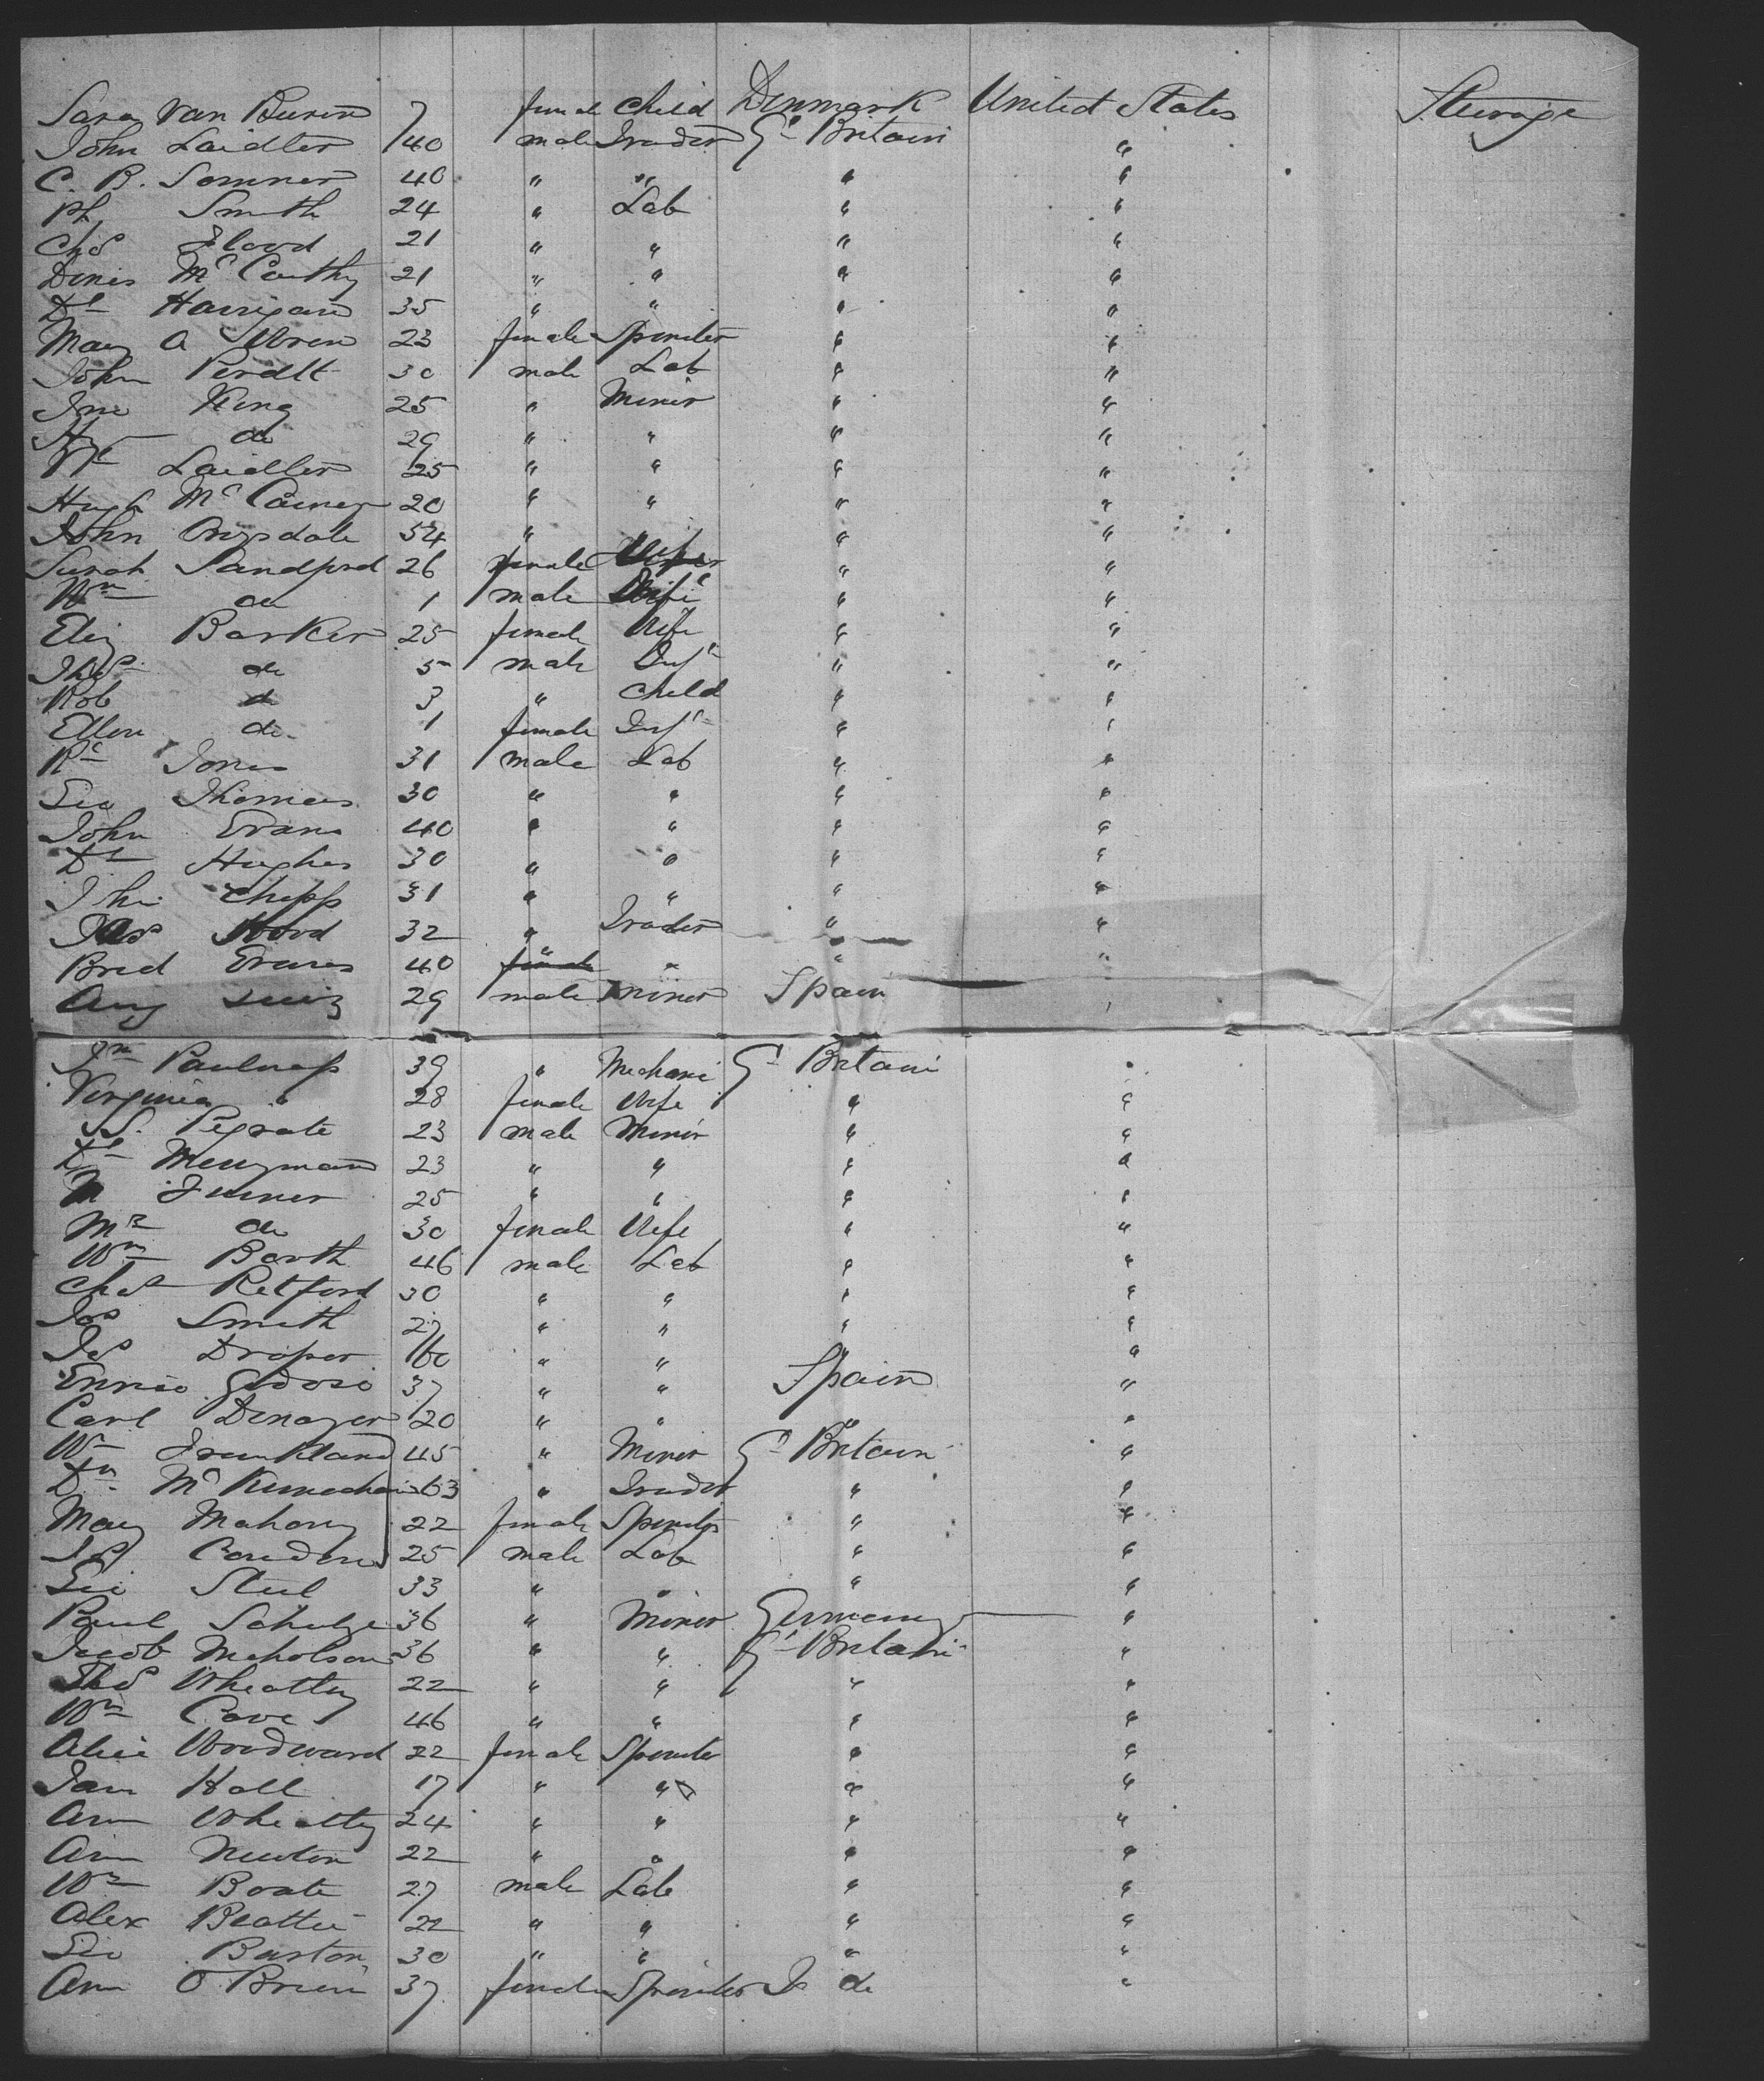 Sara Van Buren 7 female Child Denmark United States Steerage
John Laidler 40 male Trader Gt Britain "
C. B. Somner 40 " " " "
Ph Smith 24 " Lab " "
Chs Flood 21 " " " "
Denis McCarthy 21 " " " "
Dl Harrigan 35 " " " "
Mary A Wren 23 female Spinster " "
John 30 male Lab " "
Jno King 25 " Miner " "
Hy do 29 " " " "
Laidler 25 " " " "
Hugh Mc 20 " " " "
John 54 " " "
Sarah Sandford 26 female Wife " "
Wm do 1 male " "
Eliz Barker 25 female Wife " "
Thos do 5 male Inft " "
Rob do 3 " Child " "
Ellen do 1 female Inft " "
Rd Jones 31 male Lab " "
Geo Thomas 30 " " " "
John Evans 40 " " " "
Dl Hughes 30 " " " "
Jhn Chipp 31 " " " "
Jas Wood 32 " Trader " "
Bred Evans 40 " " " "
Aug 29 male Miner Spain "
Jn 39 " Mechani Gt Britain "
Virginia " 28 female Wife " "
S. 23 male Miner " "
Dl 23 " " " "
M Turner 25 " " " "
Mrs do 30 female Wife " "
Wm Barth 46 male Lab " "
Chas Retford 30 " " " "
Jos Smith 27 " " " "
Jas Draper 60 " " " "
37 " " Spain "
Carl 20 " " " "
Wm Frankland 45 " Miner Gt Britain "
Dn Mc 63 " Trader " "
Mary Mahony 22 female Spinster " "
25 male Lab " "
Geo Steel 33 " " " "
Paul Schulze 36 " Miner Germany "
Jacob Nicholson 36 " " Gt Britain "
Thos Wheatley 22 " " " "
Wm Cove 46 " " " "
Alice Woodward 22 female Spinster " "
Jane Hall 17 " " " "
Ann Wheatley 24 " " " "
Ann Newton 22 " " " "
Wm Boate 27 male Lab " "
Alex Beattie 22 " " " "
Geo Burton 30 " " " "
Ann O'Brien 37 female Spinster do "